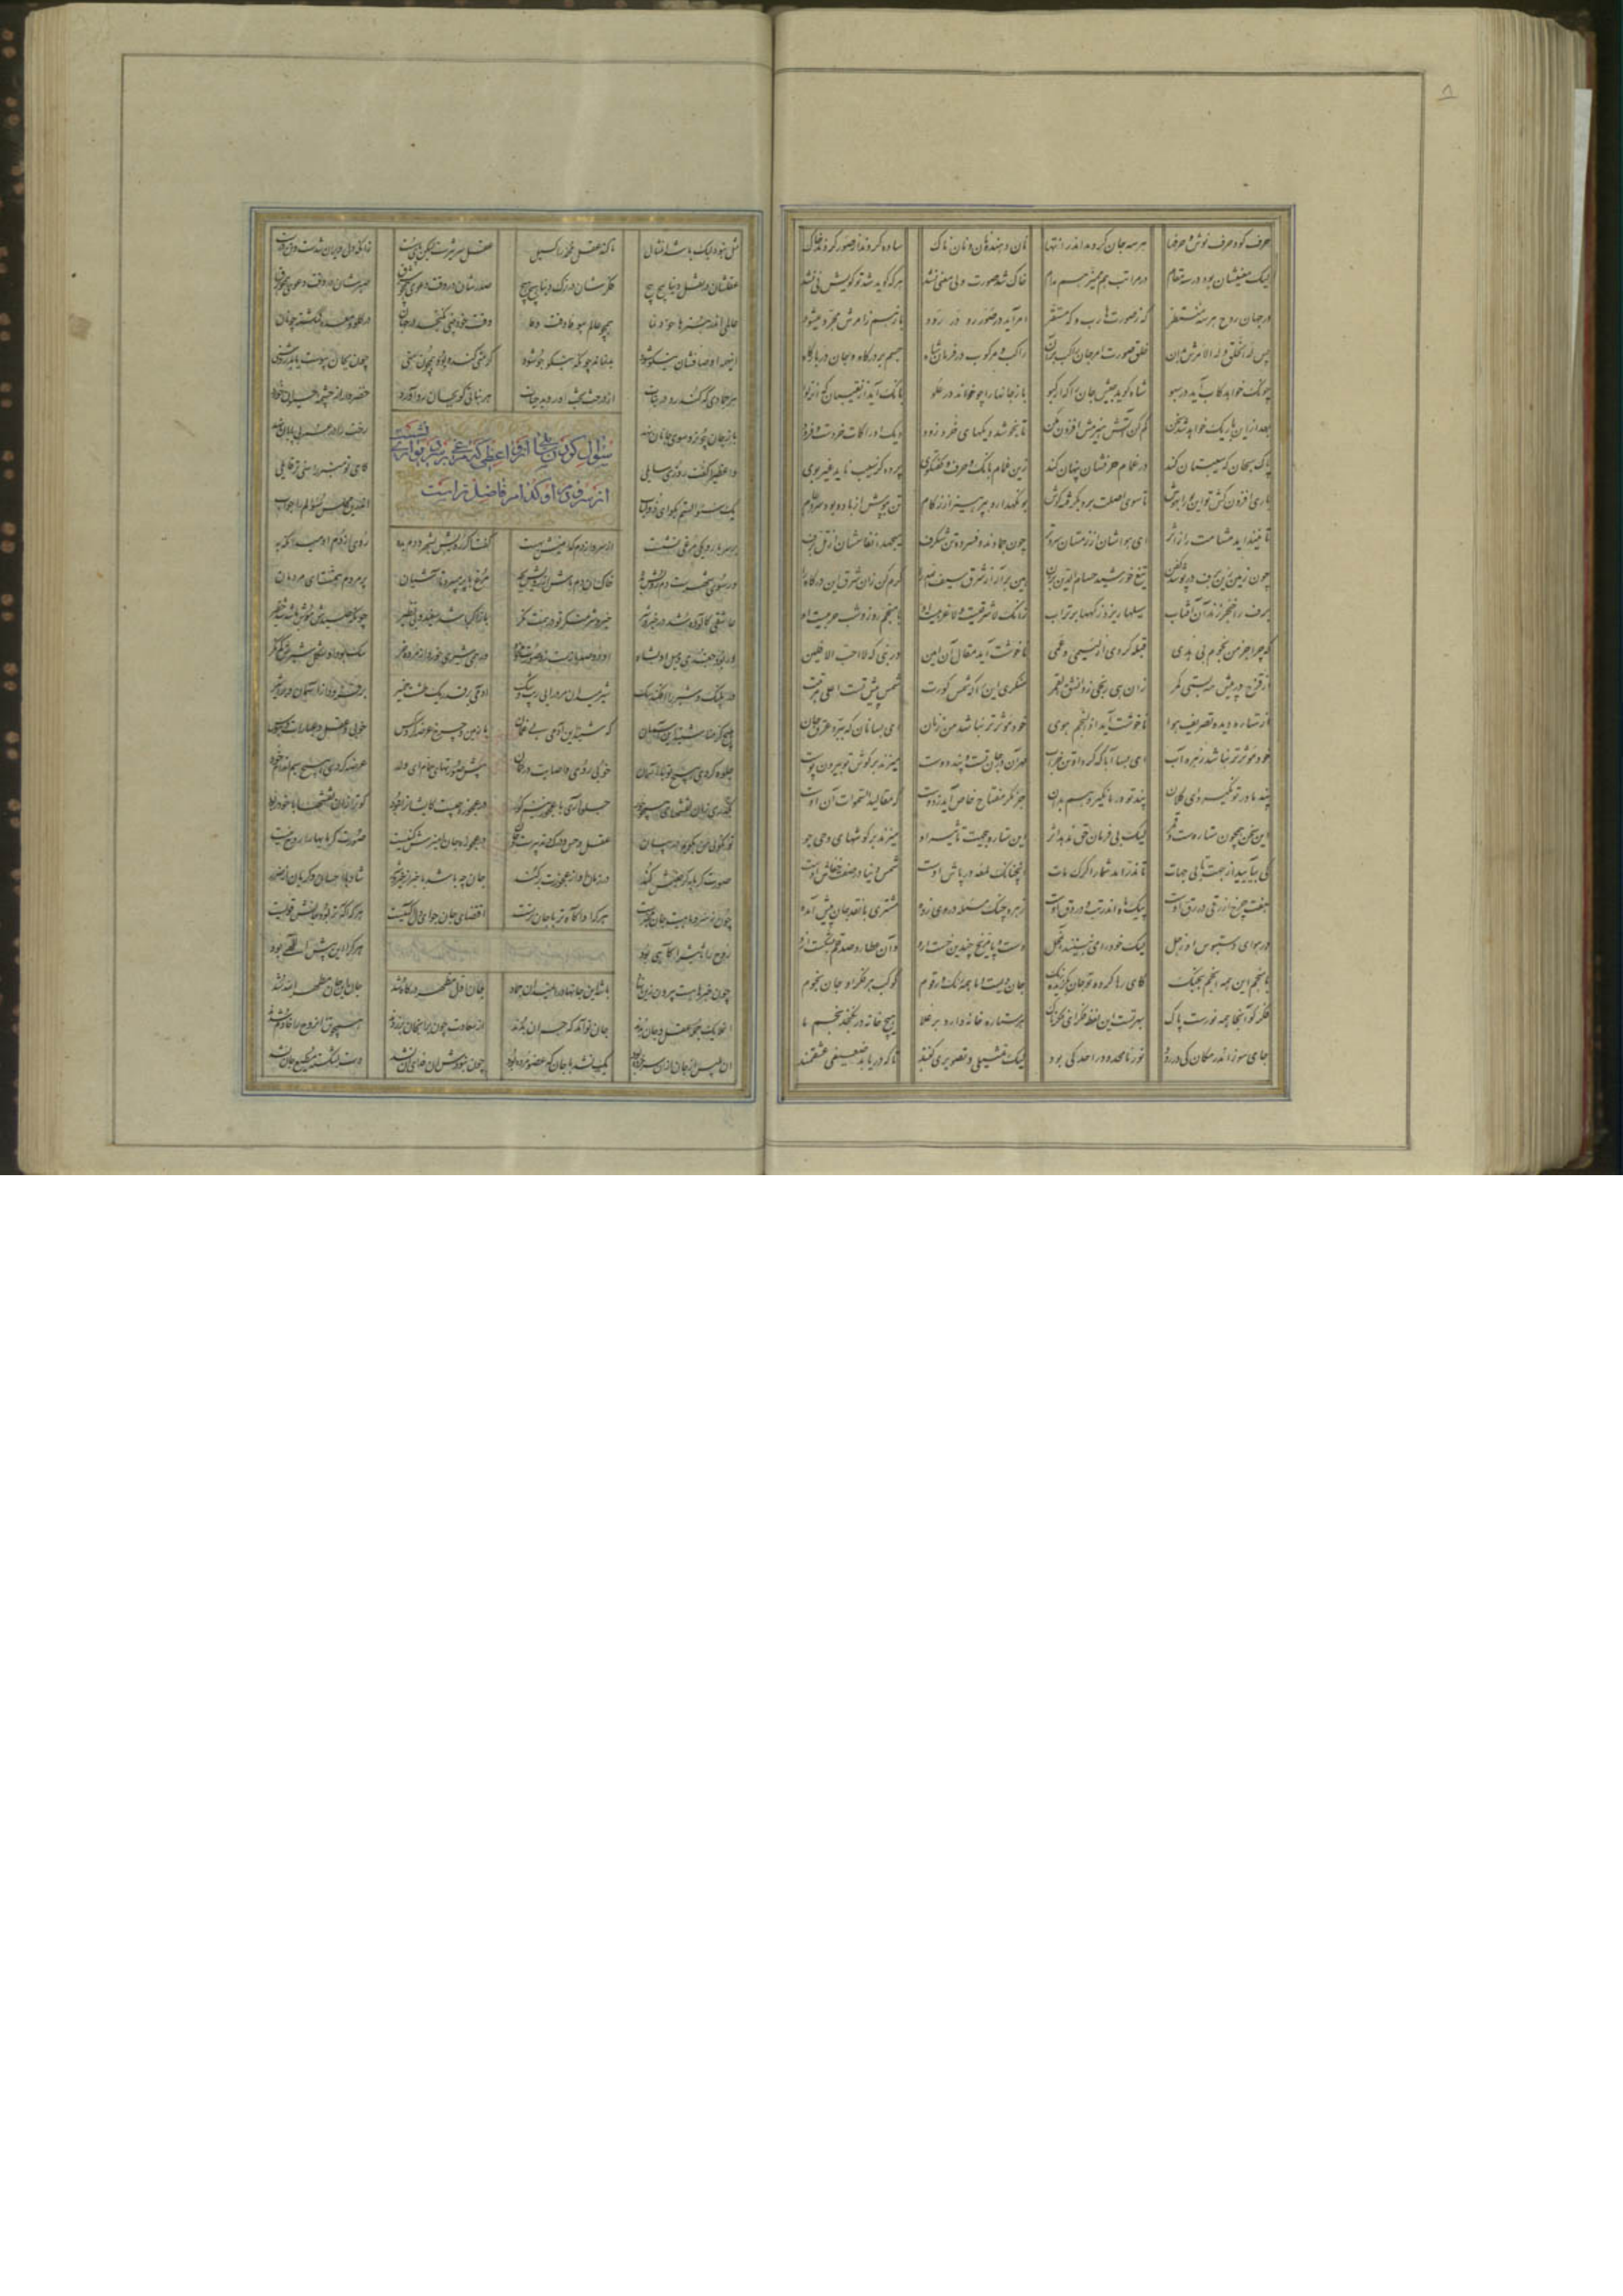 حرف گو و حرف نوش و حرفها هر سه جان گردند اندر انتها نان دهنده و نان ستان و نان پاک ساده گردند از صور گردند خاک
لیک معنیشان بود در سه مقام در مراتب هم ممیز هم مدام خاک شد صورت ولی معنی نشد هر که گوید شد تو گویش نی نشد
در جهان روح هر سه منتظر گه ز صورت هارب و گه مستقر امر آید در صور رو در رود باز هم ز امرش مجرد میشود
پس له الخلق و له الامرش بدان خلق صورت امر جان راکب بر آن راکب و مرکوب در فرمان شاه جسم بر درگاه و جان در بارگاه
چونک خواهد کاب آید در سبو شاه گوید جیش جان را که ارکبوا باز جانها را چو خواند در علو بانگ آید از نقیبان که انزلوا
بعد ازین باریک خواهد شد سخن کم کن آتش هیزمش افزون مکن تا نجوشد دیگهای خرد زود دیگ ادراکات خردست و فرود
پاک سبحان که سیبستان کند در غمام حرفشان پنهان کند زین غمام بانگ و حرف و گفتگوی پرده کز سیب ناید غیر بوی
باری افزون کش تو این بو را بهوش تا سوی اصلت برد بگرفته گوش بو نگهدار و بپرهیز از زکام تن بپوش از باد و بود سرد عام
تا نینداید مشامت را ز اثر ای هواشان از زمستان سردتر چون جمادند و فسرده و تن شگرف میجهد انفاسشان از تل برف
چون زمین زین برف در پوشد کفن تیغ خورشید حسام الدین بزن هین برآر از شرق سیف الله را گرم کن زان شرق این درگاه را
برف را خنجر زند آن آفتاب سیلها ریزد ز کهها بر تراب زانک لا شرقیست و لا غربیست او با منجم روز و شب حربیست او
که چرا جز من نجوم بی هدی قبله کردی از لئیمی و عمی ناخوشت آید مقال آن امین در نبی که لا احب الافلین
از قزح در پیش مه بستی کمر زان همی رنجی ز وانشق القمر منکری این را که شمس کورت شمس پیش تست اعلی مرتبت
از ستاره دیده تصریف هوا ناخوشت آید اذا النجم هوی خود موثرتر نباشد مه ز نان ای بسا نان که ببرد عرق جان
خود موثرتر نباشد زهره ز آب ای بسا آبا که کرد او تن خراب مهر آن در جان تست و پند دوست میزند بر گوش تو بیرون پوست
پند ما در تو نگیرد ای فلان پند تو در ما نگیرد هم بدان جز مگر مفتاح خاص آید ز دوست که مقالید السموات آن اوست
این سخن همچون ستاره ست و قمر لیک بی فرمان حق ندهد اثر این ستاره بی جهت تاثیر او میزند بر گوشهای وحی جو
کی بیایید از جهت تا بی جهات تا ندراند شما را گرگ مات آنچنانک لمعه درپاش اوست شمس دنیا در صفت خفاش اوست
هفت چرخ ازرقی در رق اوست پیک ماه اندر تب و در دق اوست زهره چنگ مسئله در وی زده مشتری با نقد جان پیش آمده
در هوای دستبوس او زحل لیک خود را می نبیند آن محل دست و پا مریخ چندین خست ازو وان عطارد صد قلم بشکست ازو
با منجم این همه انجم بجنگ کای رها کرده تو جان بگزیده رنگ جان ویست و ما همه رنگ و رقوم کوکب هر فکر او جان نجوم
فکر کو آنجا همه نورست پاک بهر تست این لفظ فکر ای فکرناک هر ستاره خانه دارد بر علا هیچ خانه درنگنجد نجم ما
جای سوز اندر مکان کی در رود نور نامحدود را حد کی بود لیک تمثیلی و تصویری کنند تا که دریابد ضعیفی عشقمند
مثل نبود لیک باشد آن مثال تا کند عقل مجمد را گسیل عقل سر تیزست لیکن پای سست زانکه دل ویران شدست و تن درست
عقلشان در نقل دنیا پیچ پیچ فکرشان در ترک دنیا هیچ هیچ صدرشان در وقت دعوی همچو شرق صبرشان در وقت تقوی همچو برق
عالمی اندر هنرها خودنما همچو عالم بیوفا وقت وفا وقت خودبینی نگنجد در جهان در گلو و معده گم گشته چو نان
این همه اوصافشان نیکو شود بد نماند چونکه نیکو جو شود گر منی گنده بود همچون منی چون بجان پیوست یابد روشنی
هر جمادی که کند رو در نبات از درخت بخت او روید حیات هر نباتی کو بجان رو آورد خضروار از چشمه حیوان خورد
باز جان چون رو سوی جانان نهد رخت را در عمر بی پایان نهد
سوال کردن سایل از واعظی که مرغی بر سر ربض نشست
از سر و دم او کدام فاضلترست
واعظی را گفت روزی سایلی کای تو منبر را سنی تر قایلی
یک سوالستم بگو ای ذو لباب اندرین مجلس سوالم را جواب
بر سر بارو یکی مرغی نشست از سر و از دم کدامینش بهست گفت اگر رویش بشهر و دم بده روی او از دم او میدان که به
ور سوی شهرست دم رویش بده خاک آن دم باش و از رویش بجه مرغ با پر میپرد تا آشیان پر مردم همتست ای مردمان
عاشقی کآلوده شد در خیر و شر خیر و شر منگر تو در همت نگر باز اگر باشد سفید و بی نظیر چونکه صیدش موش باشد شد حقیر
ور بود جغدی و میل او بشاه او سر بازست منگر در کلاه
آدمی بر قد یک طشت خمیر بر فزود از آسمان و از اثیر
هیچ کرمنا شنید این آسمان که شنید این آدمی پر غمان بر زمین و چرخ عرضه کرد کس خوبی و عقل و عبارات و هوس
جلوه کردی هیچ تو بر آسمان خوبی روی و اصابت در گمان پیش صورتهای حمام ای ولد عرضه کردی هیچ سیم اندام خود
بگذری زان نقشهای همچو حور جلوه آری با عجوز نیم کور در عجوزه چیست کایشان را نبود کو ترا زان نقشها با خود ربود
تو نگویی من بگویم در بیان عقل و حس و درک و تدبیرست و جان در عجوزه جان آمیزش کنیست صورت گرمابها را روح نیست
صورت گرمابه گر جنبش کند در زمان او از عجوزت بر کند جان چه باشد با خبر از خیر و شر شاد با احسان و گریان از ضرر
چون سر و ماهیت جان مخبرست هر که او آگاه تر با جان ترست اقتضای جان چو ای دل آگهیست هر که آگه تر بود جانش قویست
روح را تاثیر آگاهی بود هر که را این بیش اللهی بود
چون خبرها هست بیرون زین نهاد باشد این جانها در آن میدان جماد جان اول مظهر درگاه شد جان جان خود مظهر الله شد
آن ملایک جمله عقل و جان بدند جان نو آمد که جسم آن بدند از سعادت چون بر آن جان بر زدند همچو تن آن روح را خادم شدند
آن بلیس از جان از آن سر برده بود یک نشد با جان که عضو مرده بود چون نبودش آن فدای آن نشد دست بشکسته مطیع جان نشد